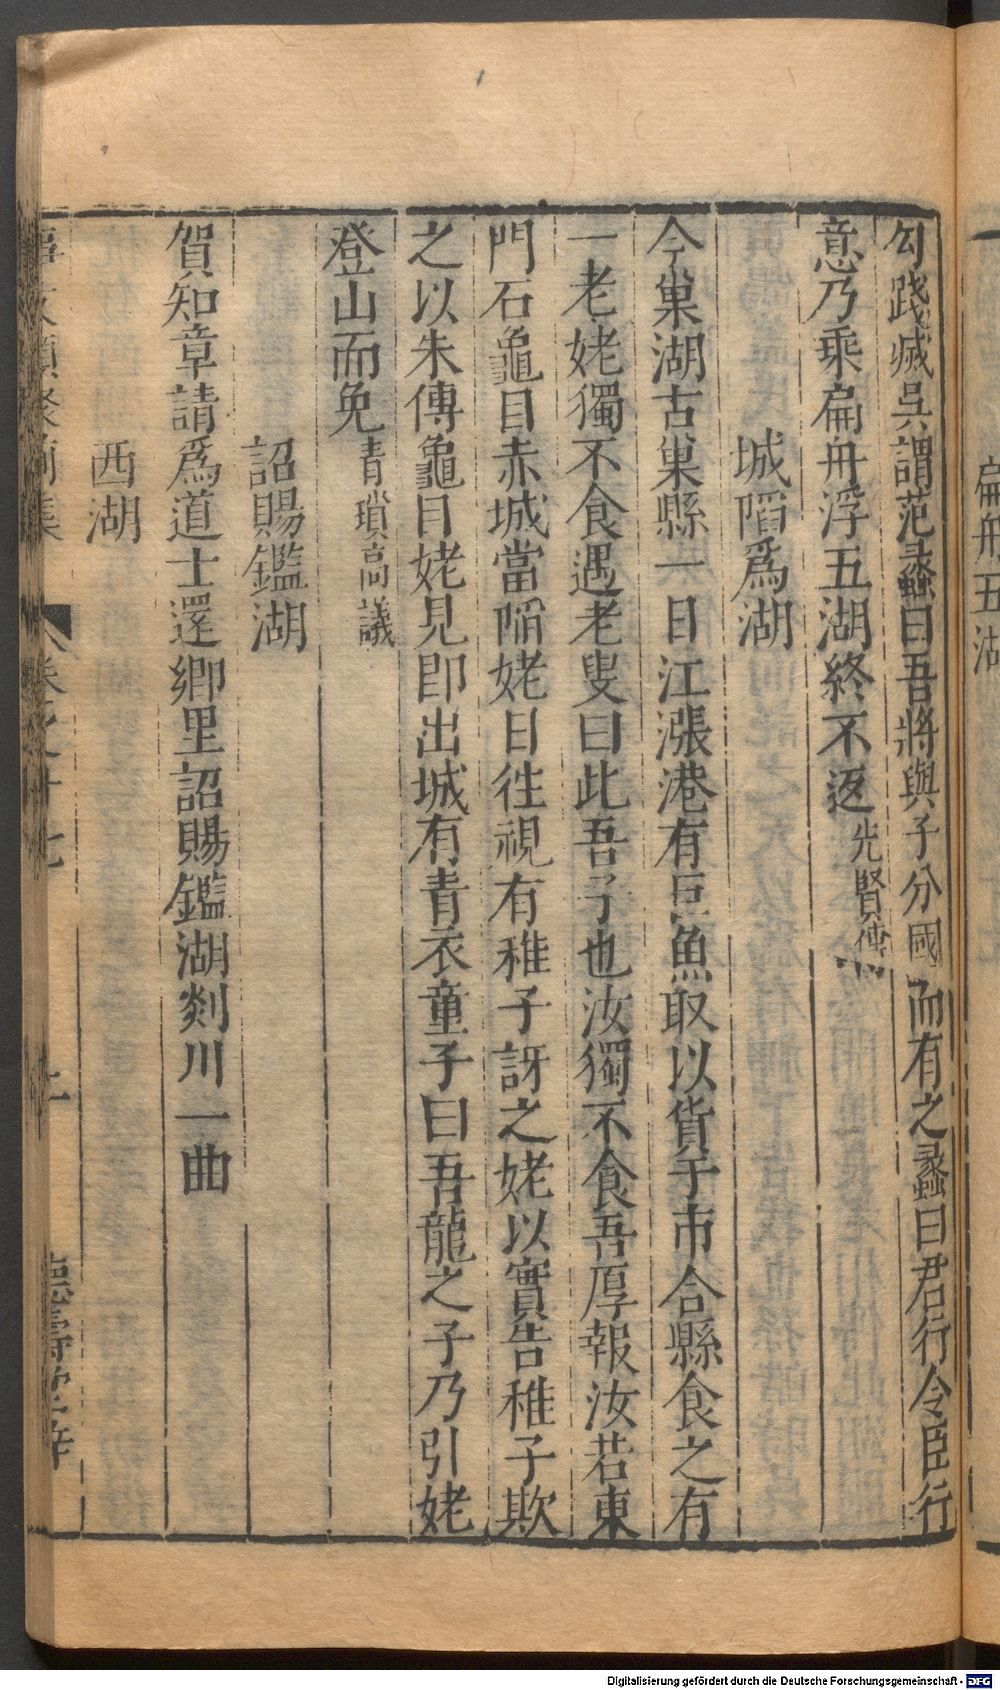 扁舟五湖
勾踐㓕吳謂范蠡曰吾將與子分國而有之蠡曰君行令臣行
意乃乘扁舟浮五湖終不返先賢傳
城䧟爲湖
今巢湖古巢縣一日江漲港有巨魚取以貨于市合縣食之有
一老姥獨不食遇老叟曰此吾子也汝獨不食吾厚報汝若東
門石龜目赤城當䧟姥日徃視有稚子訝之姥以實告稚子欺
之以朱傅龜目姥見即出城有青衣童子曰吾龍之子乃引姥
登山而免青瑣高議
詔賜鑑湖
賀知章請爲道士還鄉里詔賜鑑湖剡川一曲
西湖
事文類聚前集 卷之十七 德壽堂梓
Digitalisierung gefördert durch die Deutsche Forschungsgemeinschaft - DFG